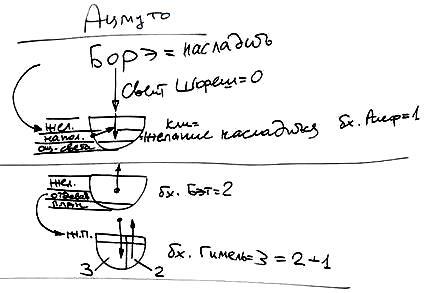 Ацмуто
Борэ = насладить
Свет Шореш = 0
жел.
напол.
ощ. света
кли =
= желание насладиться
бх. Алеф = 1
жел.
бх. Бэт = 2
ж.п.
бх. Гимель = 3 = 2 + 1
3
2